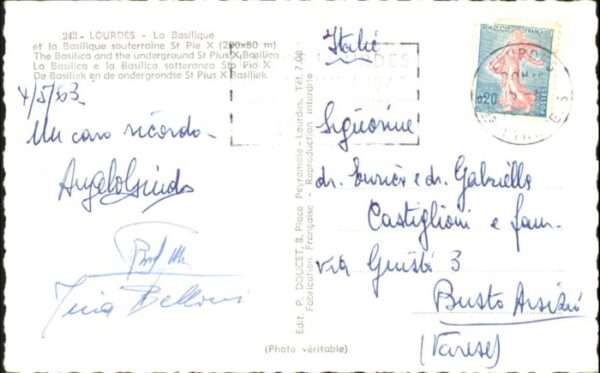 243 - LOURDES - La Basilique
et la Basilique souterraine St Pie X (200×80 m)
The Basilica and the underground St Pius X Basilica
La Basilica e la Basilica sotteranea Sto Pio X
De Basiliek en de ondergrondse St Pius X Basiliek
4/5/63
Un caro ricordo -
Tina Belloni
Edit. P. DOUCET, 8, Place Peyramale - Lourdes. Tél. 7.08
Fabrication Française - Reproduction interdite
LOURDES
0,20
Italie
Signorine
dr. Enrica e dr. Gabriella
Castiglioni e fam.
via Giusti 3
Busto Arsizio
(Varese)
(Photo véritable)